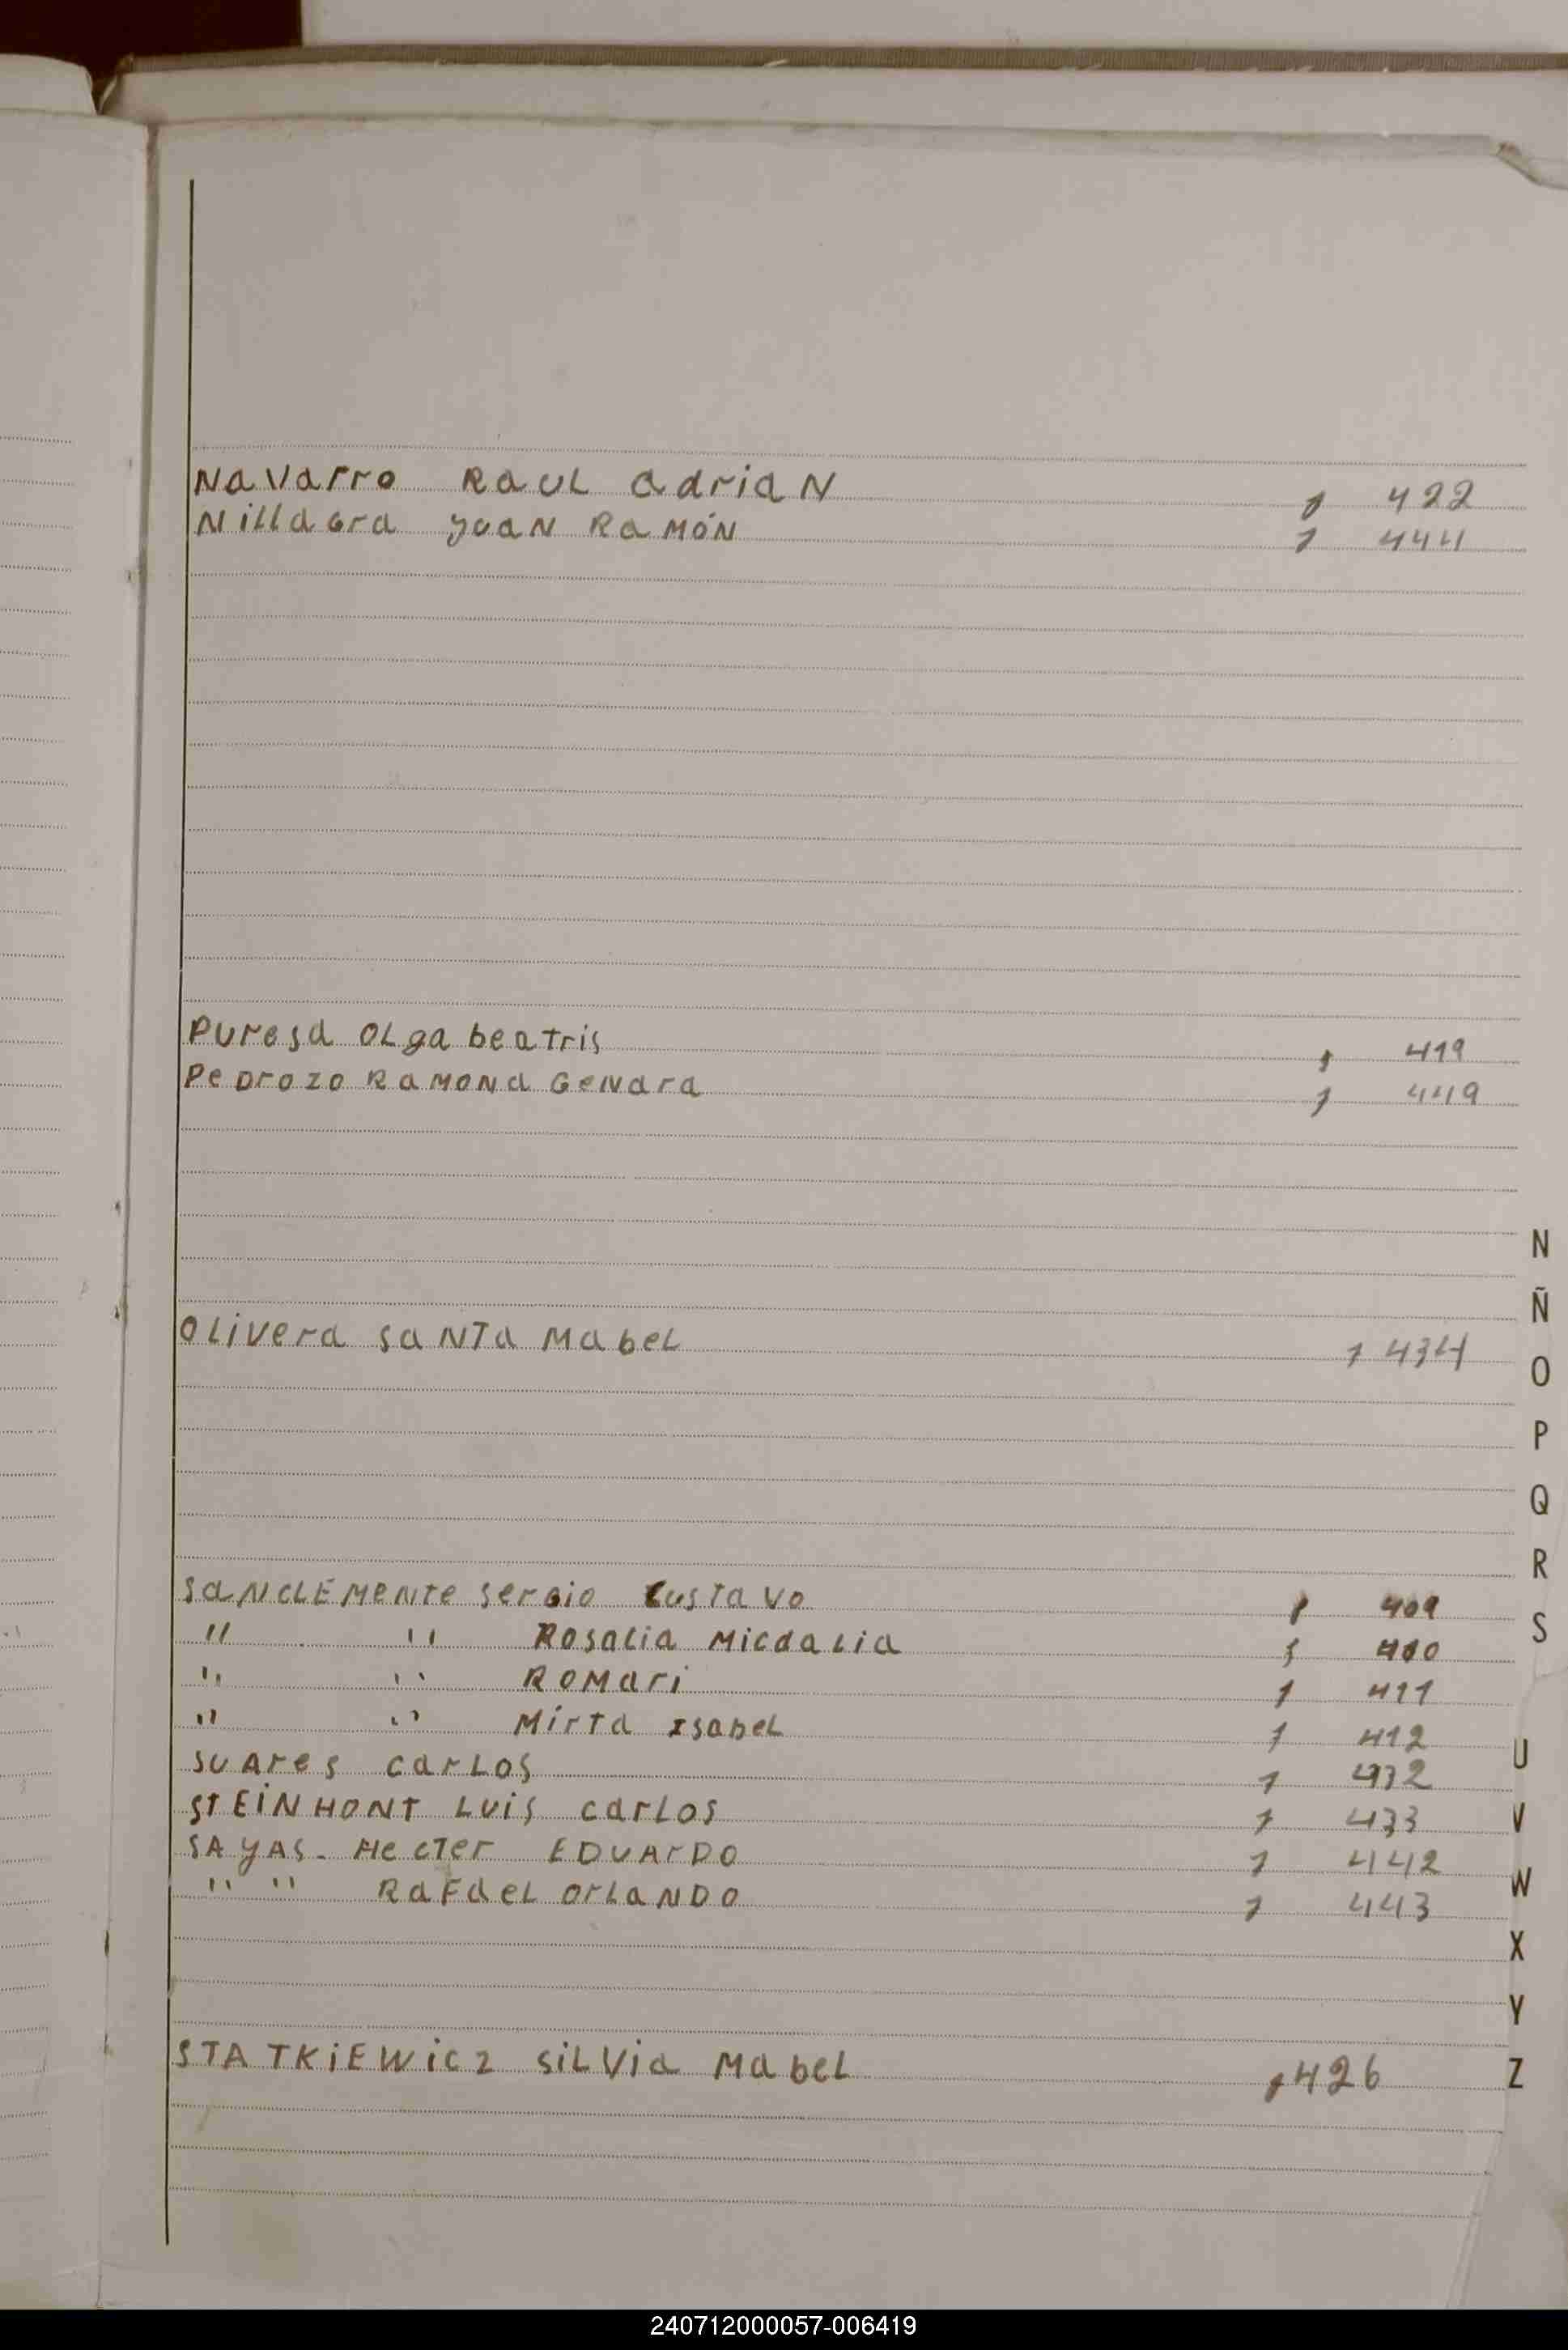 Navarro Raul adrian 1 422
Nilldgra Juan Ramón 1 444
Puresa Olga beatris 1 419
Pedrozo Ramona Genara 1 449
Olivera Santa Mabel 1 434
N
Ñ
O
P
Q
R
S
SanclEmente Sergio Gustavo 1 409
" " Rosalia Micdalia 1 410
" " Romari 1 411
" " Mirta Isabel 1 412
Suares Carlos 1 432
STEiNHONT Luis Carlos 1 433
SAYAS- Hecter EDUArDO 1 442
" " Rafael OrlanDo 1 443
U
V
W
X
Y
Z
STATKiEWicz Silvia Mabel 1 426
240712000057-006419